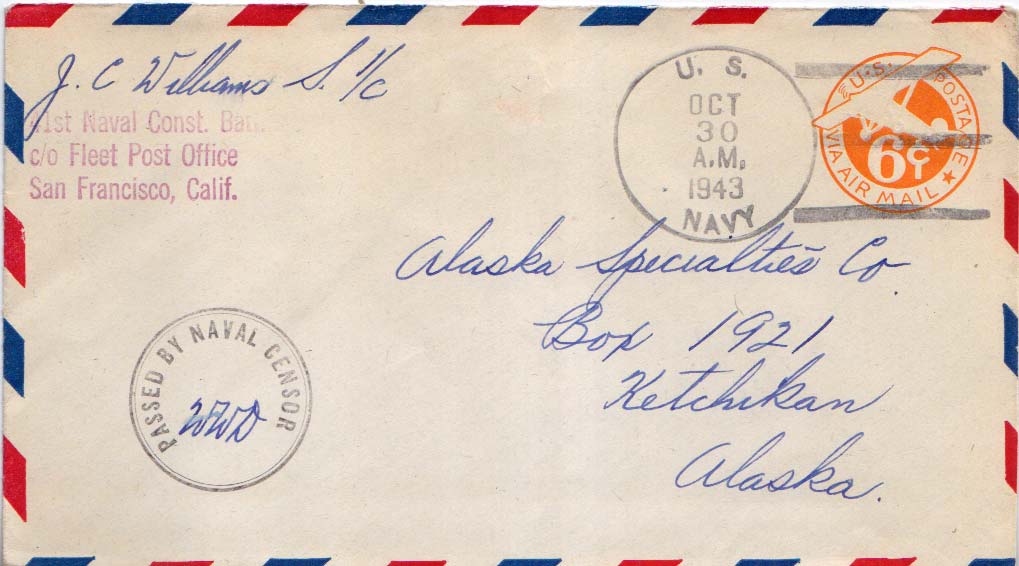 J. C Williams S. 1/c
41st Naval Const. Bat.
c/o Fleet Post Office
San Francisco, Calif.
U. S.
OCT
30
A.M.
1943
NAVY
U.S. POSTAGE
6¢
VIA AIR MAIL
Alaska Specialties Co
Box 1921
Ketchikan
Alaska.
PASSED BY NAVAL CENSOR
WWD